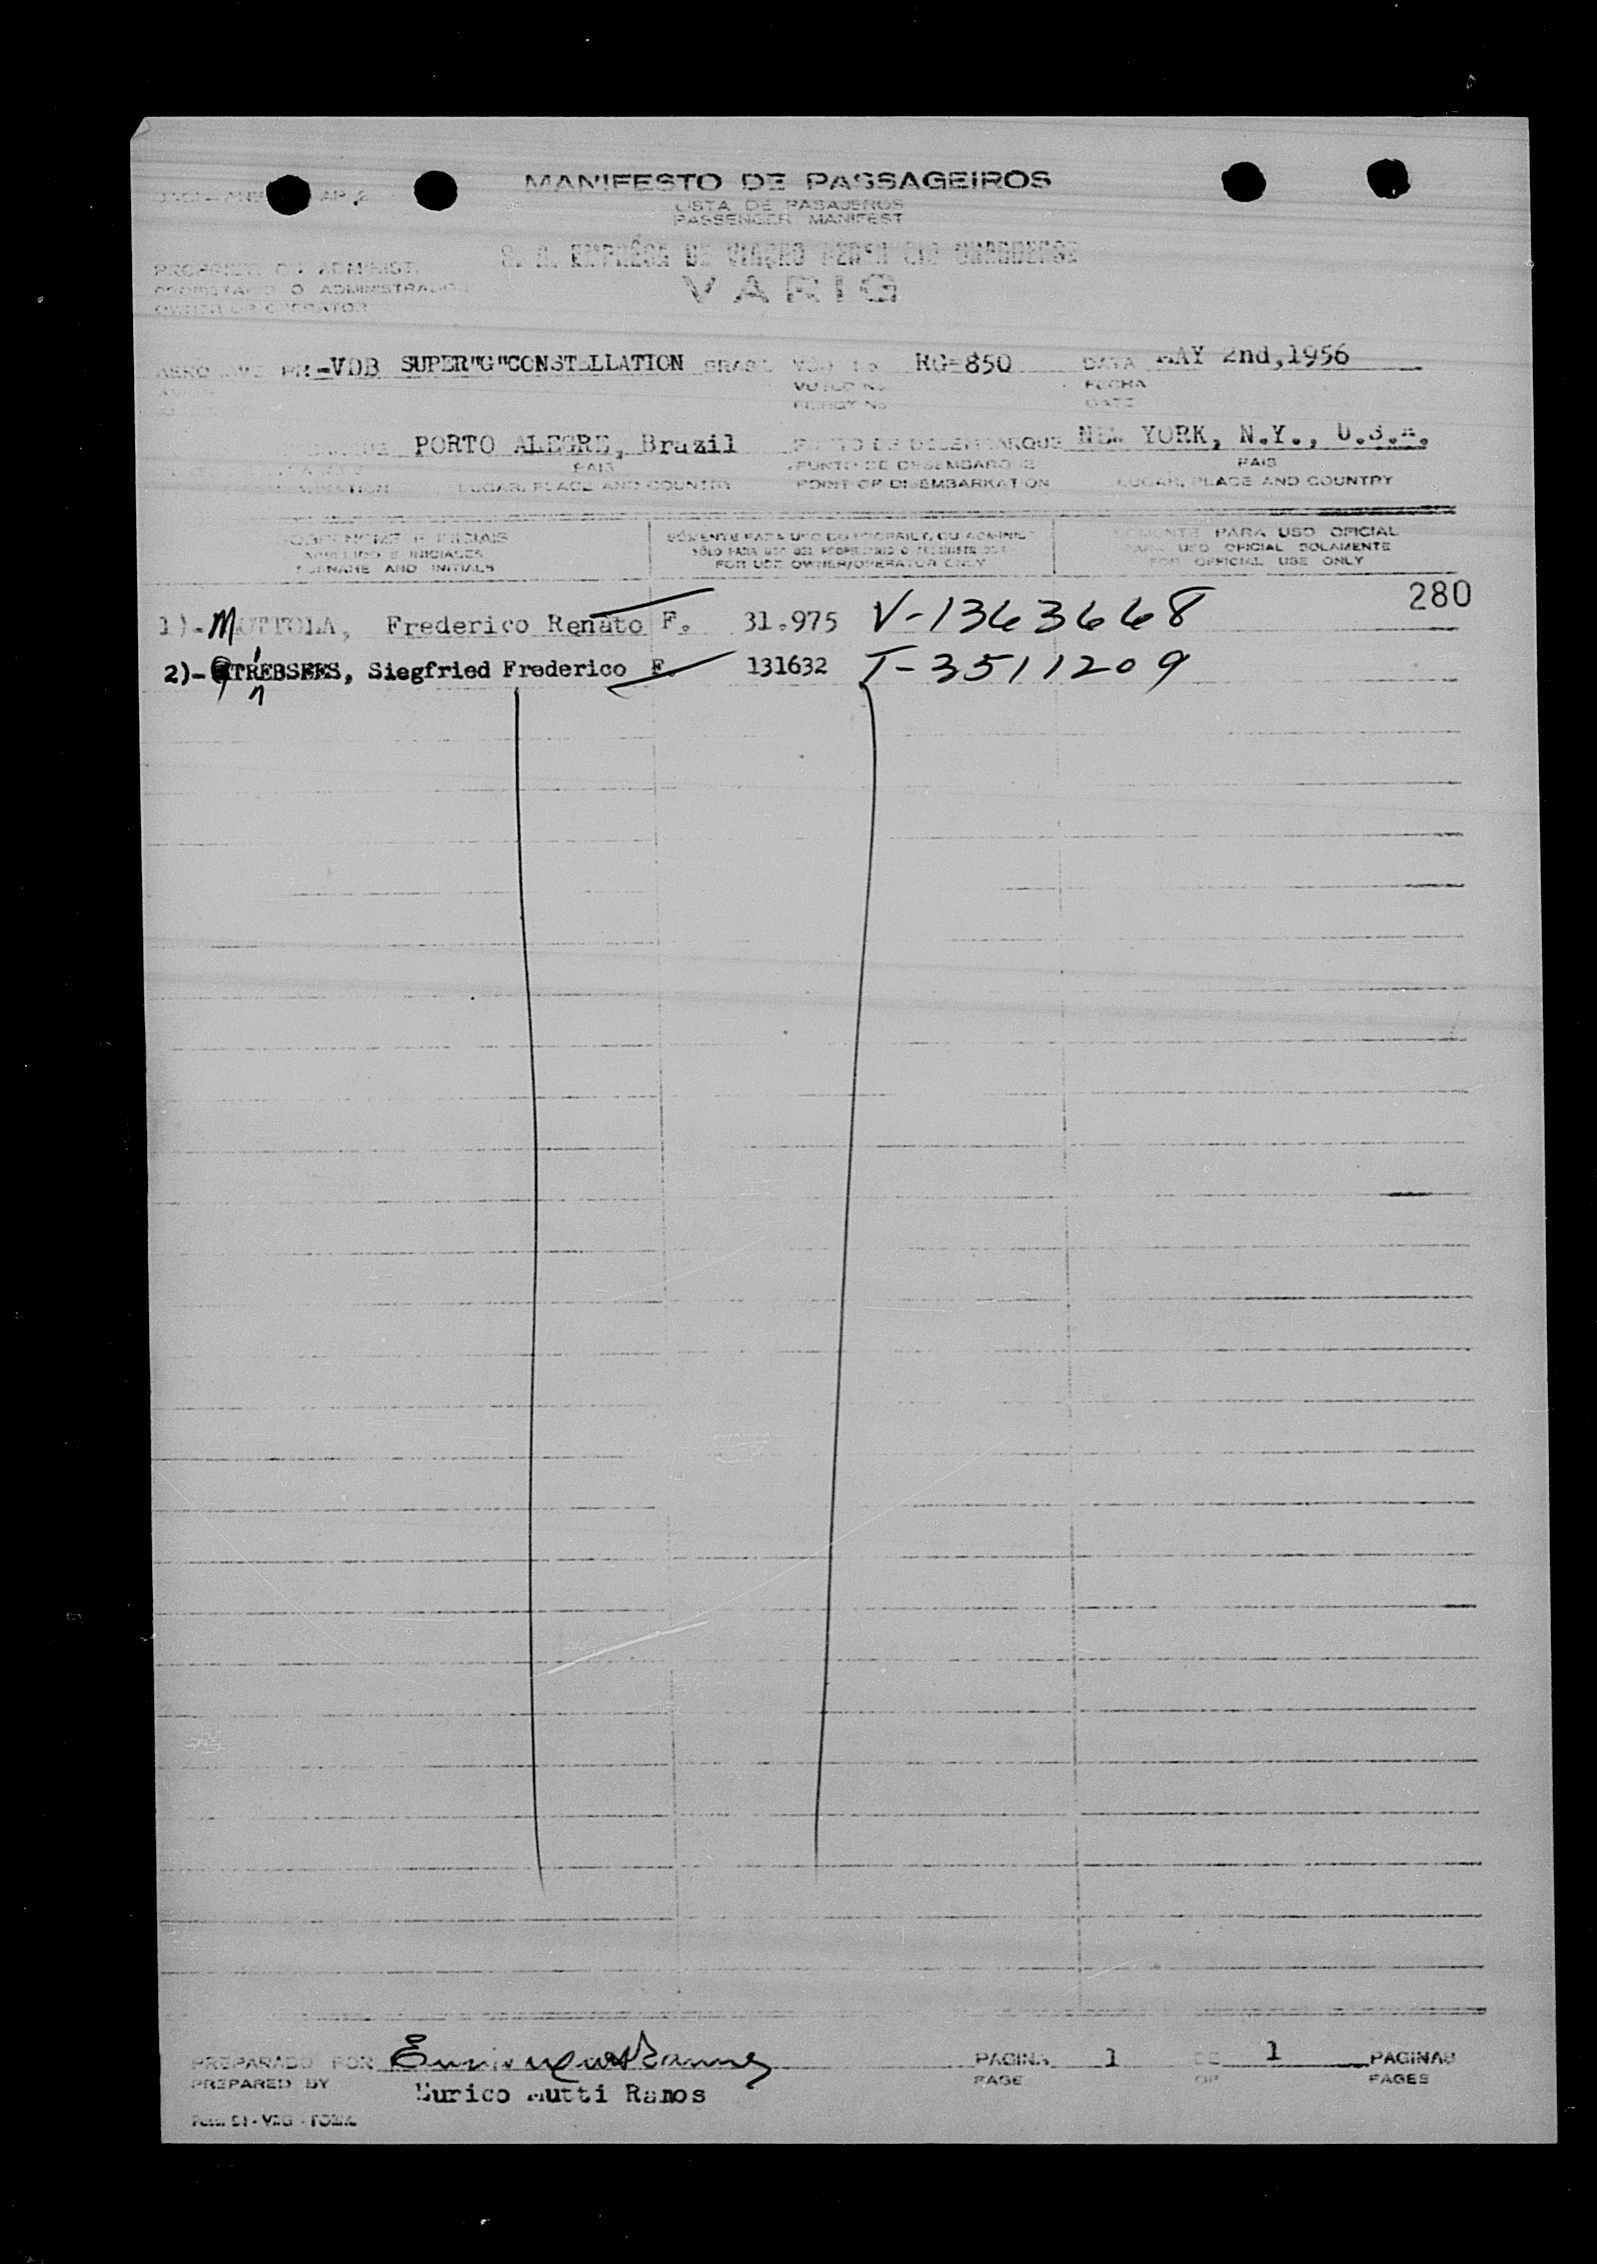 MANIFESTO DE PASSAGEIROS
LISTA DE PASAJEROS
PASSENGER MANIFEST
S. A. EMPRÊSA DE VIAÇÃO AÉREA RIO GRANDENSE
VARIG
PROPRIET. OU ADMINIST.
PROPIETARIO O ADMINISTRADOR
OWNER OR OPERATOR
-VDB SUPER"G"CONSTELLATION RG-850 DATA MAY 2nd,1956
VUELO No FECHA
FLIGHT No DATE
PORTO ALEGRE, Brazil PONTO DE DESEMBARQUE NEW YORK, N.Y., U.S.A.
PAIS PUNTO DE DESEMBARQUE PAIS
LUGAR, PLACE AND COUNTRY POINT OF DISEMBARKATION LUGAR, PLACE AND COUNTRY
SOBRENOME E INICIAIS SÒMENTE PARA USO DO PROPRIET. OU ADMINIST. SOMENTE PARA USO OFICIAL
APELLIDO E INICIALES SÓLO PARA USO DEL PROPIETARIO O PARA USO OFICIAL SOLAMENTE
SURNAME AND INITIALS FOR USE OWNER/OPERATOR ONLY FOR OFFICIAL USE ONLY
280
1)-MOTTOLA, Frederico Renato F. 31.975 V-1363668
2)- Siegfried Frederico F. 131632 T-3511209
PREPARADO POR PAGINA 1 DE 1 PAGINAS
PREPARED BY Eurico Mutti Ramos PAGE OF PAGES